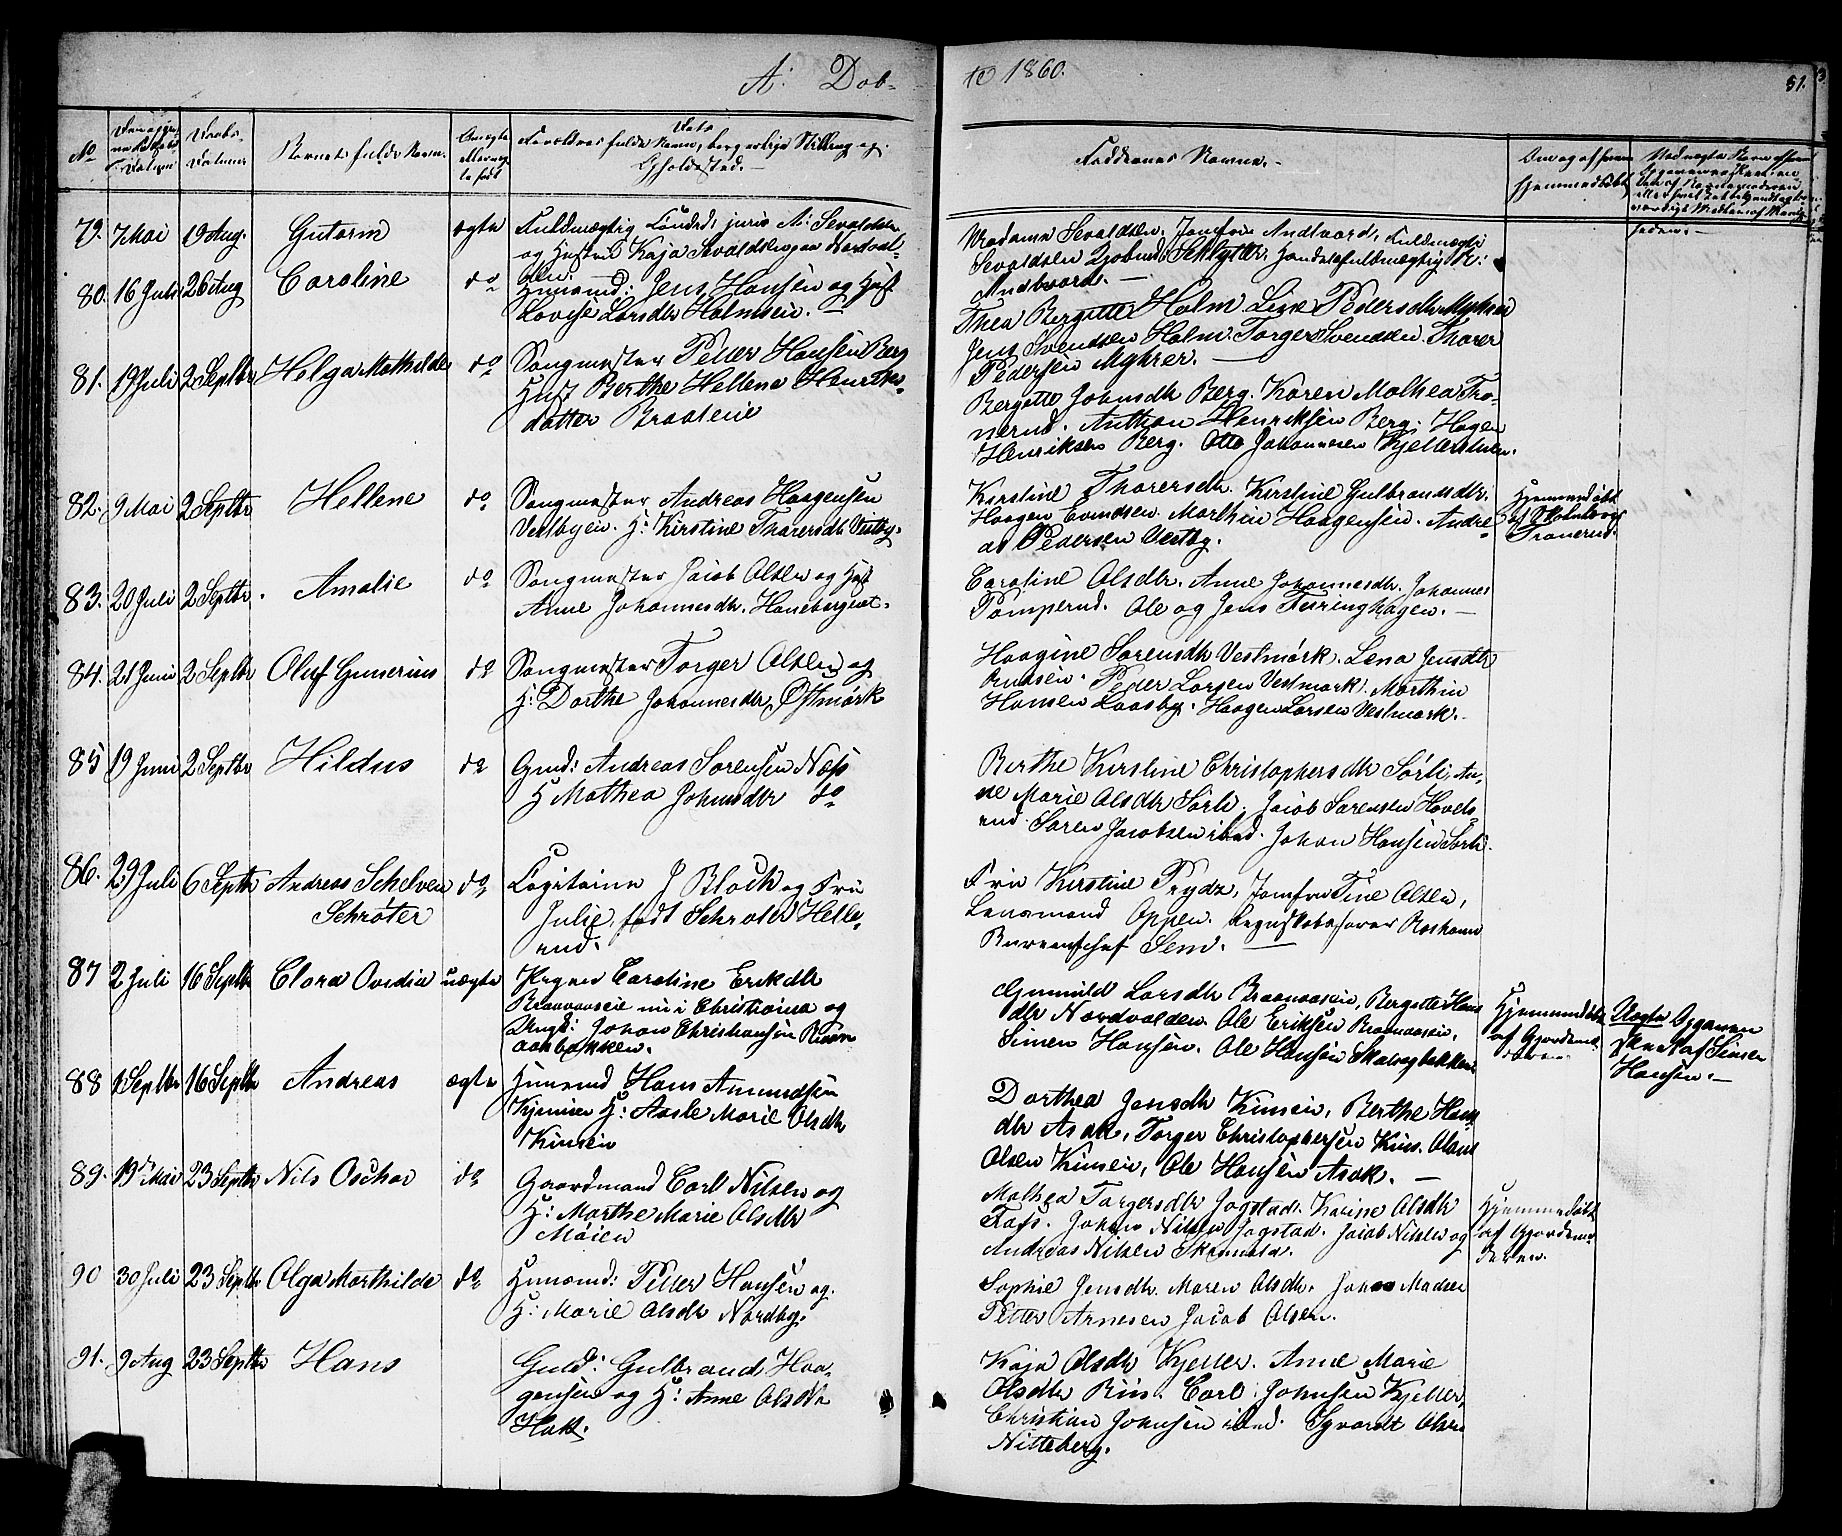 A: Dob-
te 1860.
51.
No
Daabs-
Datum
Barnets fulde Navn.
Forældres fulde Navn, borgerlige Stilling og
Opholdssted.
Faddrenes Navne.
Om og af hvem
hjemmedöbt
79. 7 Mai 19 Aug. Gutorm ægte Fuldmægtig Candid: juris A: Sevaldsen
og Hustru Kaja Sevaldsen
Madame Sevaldsen, Jomfru Andvord, Fuldmægtig
Sevaldsen Schlytter, Handelsfuldmægtig R:
Andvord.
80. 16 Juli 26 Aug Caroline do Huusmd: Jens Hansen og Hust
Lovise Larsdtr Holmsein.
Thea Bergette Holm Lise Pedersdtr Myhrer
Jens Svendsen Holm. Torger Svendsen. Thorer
Pedersen Myhrer.
81. 19 Juli 2 Septbr Helga Mathilde do Sangmester Petter Hansen Berg
Hust Berthe Hellene Henriks-
datter Braateie
Bergette Johnsdtr Berg. Karen Mathea Tro-
nerud. Anthon Henriksen Berg. Hagen
Henriksen Berg. Otto Johannesen Kjellerstuen.
82. 9 Mai 2 Septbr Hellene do Sangmester Andreas Haagensen
Vestbyen. H: Kirstine Thorersdtr Vestby.
Kirstine Thorersdtr. Kirstine Gulbrandsdtr.
Haagen Evendsen. Marthin Haagensen. Andre
as Pedersen Vestby.
Hjemmedöbt
af
Tronerud.
83. 20 Juli 2 Septbr. Amalie do Sangmester Jacob Olsen og Hust
Anne Johannesdtr. Hanebergeiet.
Caroline Olsdtr. Anne Johannesdtr. Johannes
Pomperud. Ole og Jens Tæringhagen.
84. 21 Juni 2 Septbr Oluf Gunerius do Sangmester Torger Olsen og
H: Dorthe Johannesdtr, Østmørk
Haagine Sørensdtr Vestmørk. Lena Jensdtr
Peder Larsen Vestmørk. Marthin
Hansen Laasby. Haagen Larsen Vestmørk.
85 19 Juni 2 Septbr Hildus do Gmd: Andreas Sørensen Næss
H Mathea Johnsdtr do
Berthe Kirstine Christophersdtr Sørli, An-
ne Marie Olsdtr Sørli. Jacob Sørensen Hovels
rud. Søren Jacobsen ibid. Johan Hansen Sørli.
86. 29 Juli 6 Septbr Andreas Schelven do Capitaine J Bloch og Fru
Schrøter Julie, født Schrøter Helle-
rud.
Fru Kirstine Prydz, Jomfru Tine Olsen,
Lensmand Oppen.
Bureauchef Sem.
87 2 Juli 16 Septbr Clara Ovidia uægte Pigen Caroline Eriksdtr
Braanaasein nu i Christiania og
Ungk: Johan Christiansen
Gunnild Larsdtr Braanaasein, Bergette Hans
dtr Nordvolden. Ole Eriksen Braanaasein,
Simen Hansen. Ole Hansen Skovgbakken
Hjemmedöbt
af Gjordemo-
deren
Uægte Opgaven
skreet af Simen
Hansen.
88 1 Septbr 16 Septbr Andreas ægte Huusmd Hans Amundsen
Kjeinsen H: Aaste Marie Olsdtr
Kinsein
Dorthea Jensdtr Kinsein, Berthe Hans
dtr Asak, Torger Christophersen Kins. Olaus
Olsen Kinsein, Ole Hansen Asak.
89. 19de Mai 23 Septbr Nils Oschar do Gaardmand Carl Nilsen og
H: Marthe Marie Olsdtr
Møien
Mathea Torgersdtr Jogstad. Karine Olsdtr
Tofs. Johan Nilsen Jogstad. Jacob Nilsen og
Andreas Nilsen
Hjemmedöbt
af Gjordemo-
deren.
90 30 Juli 23 Septbr Olga Marthilde do Huusmd: Petter Hansen og
H: Marie Olsdtr Nordby.
Sophie Jensdtr. Maren Olsdtr. Johan Madsen
Petter Arnesen Jacob Olsen.
91. 9 Aug 23 Septbr Hans Guld: Gulbrand Haa-
gensen og H: Anne Olsdtr
Hok.
Kaja Olsdtr Kjeller. Anne Marie
Olsdtr Riis. Carl Johnsen Kjeller,
Christian Johnsen ibid. Syvardt Olsen
Nitteberg.